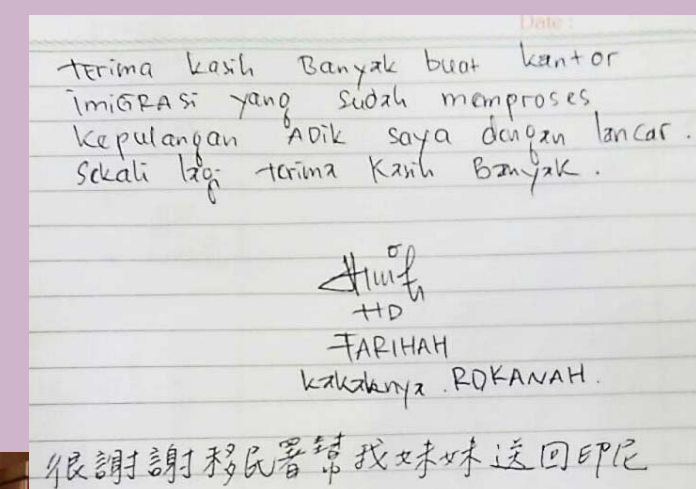 Date :
terima kasih Banyak buat kantor
imiGRASi yang sudah memproses
kepulangan ADik saya dengan lancar.
Sekali lagi terima Kasih Banyak.
TTD
FARIHAH
kakaknya ROKANAH.
很謝謝移民署幫我妹妹送回印尼